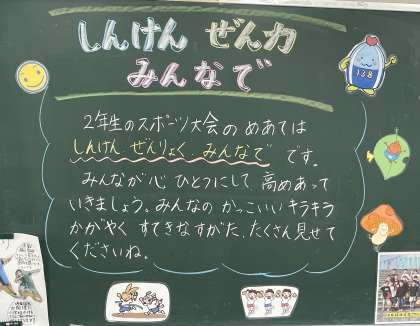 しんけん ぜん力
みんなで
138
2年生のスポーツ大会のめあては
しんけん ぜんりょく みんなで です。
みんなが心 ひとつにして、高めあって
いきましょう。みんなの かっこいい キラキラ
かがやく すてきなすがた、たくさん見せて
くださいね。